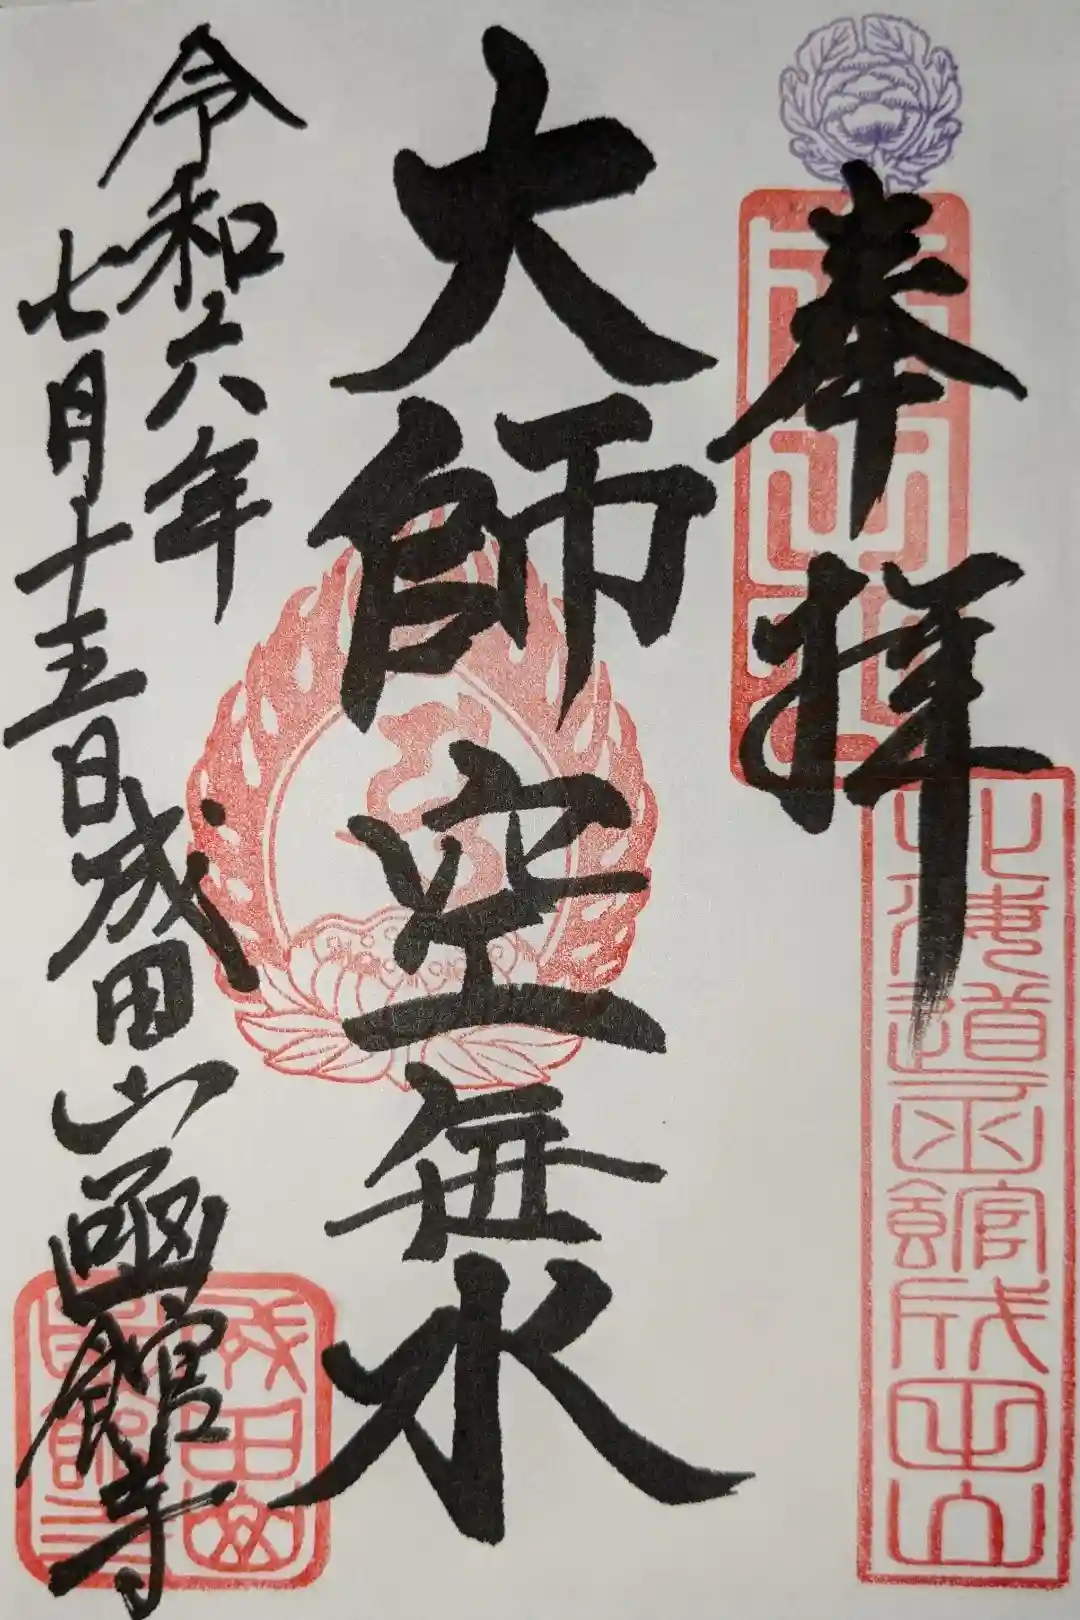 奉拝
北海道函館成田山
大師空無水
令和六年
七月十五日成田山函館寺
成田山